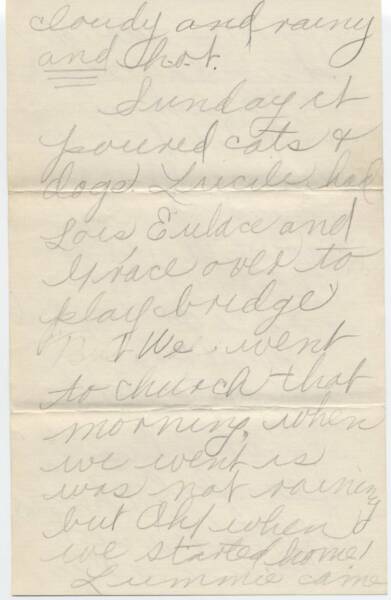 cloudy and rainy
and h.o.t.
Sunday it
poured cats &
dogs. Lucile had
Lois, Eulace and
Grace over to
play bridge
We went
to church that
morning, when
we went is
was not raining
but Oh! when
we started home!
Lummie came